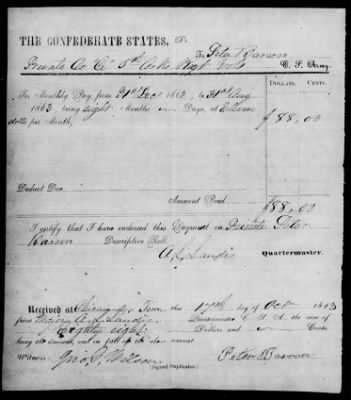 THE CONFEDERATE STATES, Dr.
To Peter Barrow
Private Co. C. 5th Arks Regt Vols C. S. Army.
DOLLARS. CENTS.
For Monthly Pay, from 31st Dec 1862, to 31st Aug
1863, being eight Months Days, at Eleven $88.00
dollars per Month,
Deduct Due
Amount Paid $88.00
I certify that I have endorsed this payment on Private Peter
Barrow Descriptive Roll.
A. L. Landis
Quartermaster.
Received at Chicamauga Tenn this 17th day of Oct 1863
from Major A. L. Landis Quartermaster C. S. A. the sum of
Eighty eight Dollars and Cents
being the amount, and in full of the above account.
Witness: Jno. P. Wilson Peter Barrow
(Signed Duplicates.)